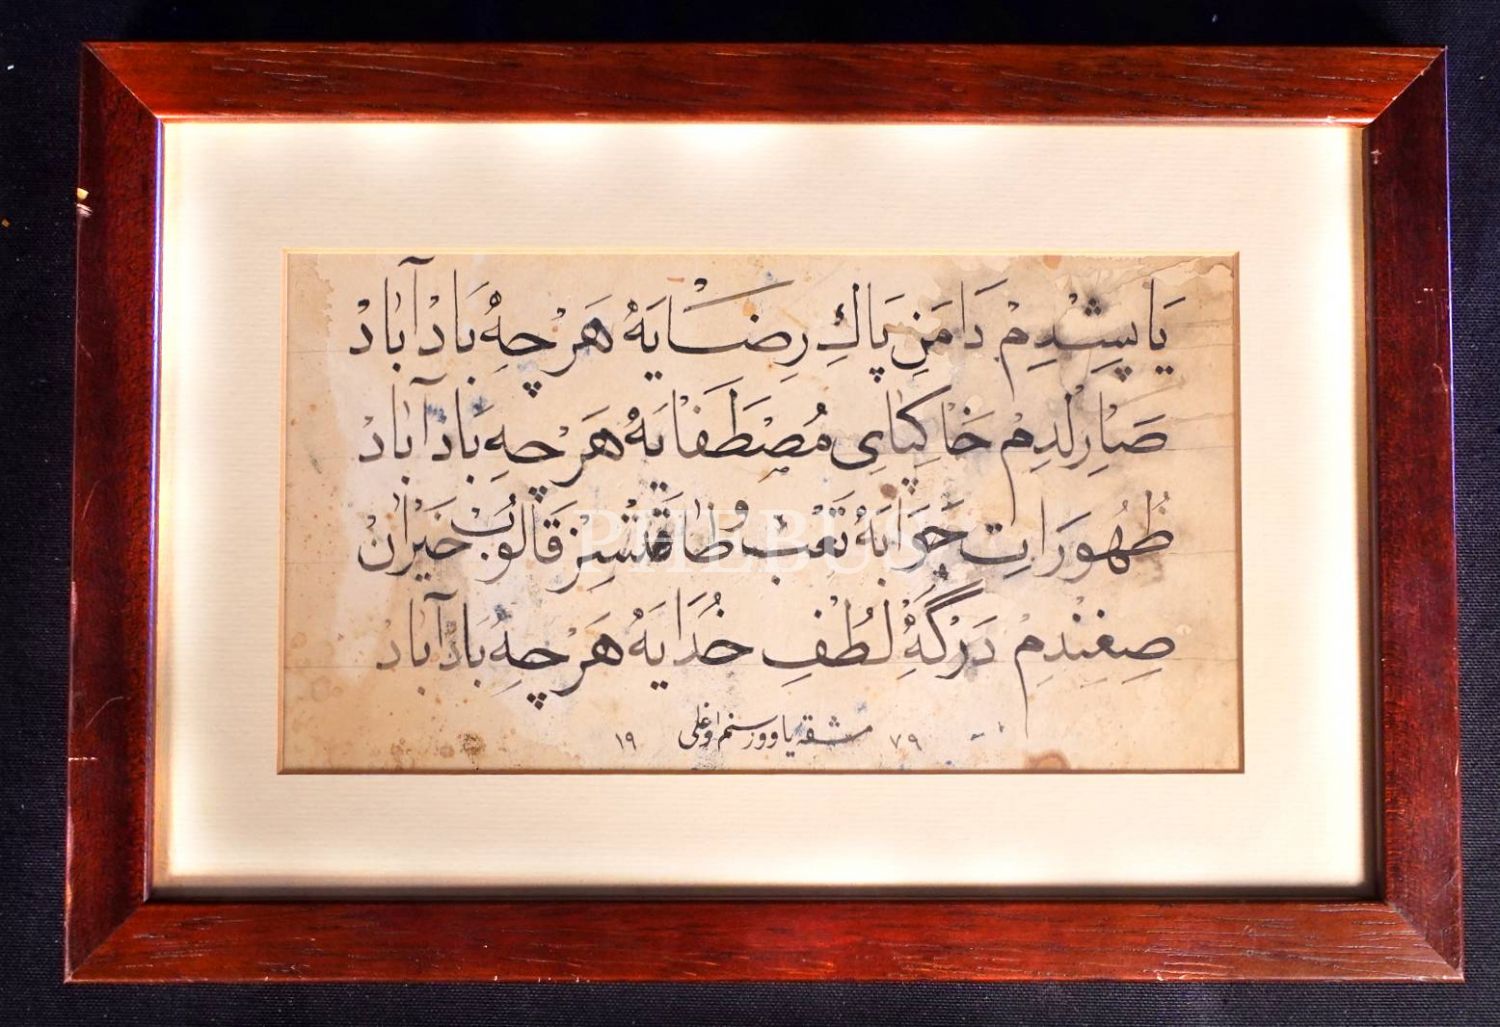 يَاپِشِدِمْ دَامَنِ پَاكِ رِضَايَهْ هَرْ چِهْ بَادْ آبَادْ
صَارِلْدِمْ خَاكِپَاىِ مُصْطَفَايَهْ هَرْ چِهِ بَادْ آبَادْ
ظُهُورَاتِ جَوَابَهْ تَعْب وُ طَاقَتْسِزْ قَالُوبْ حَيْرَانْ
صِغِنْدِمْ دَرْگَهِ لُطْفِ خُدَايَهْ هَرْ چِهِ بَادْ آبَادْ
مشقه ياوور رستم اوغلى
١٩ ٧٩
PHEBUS